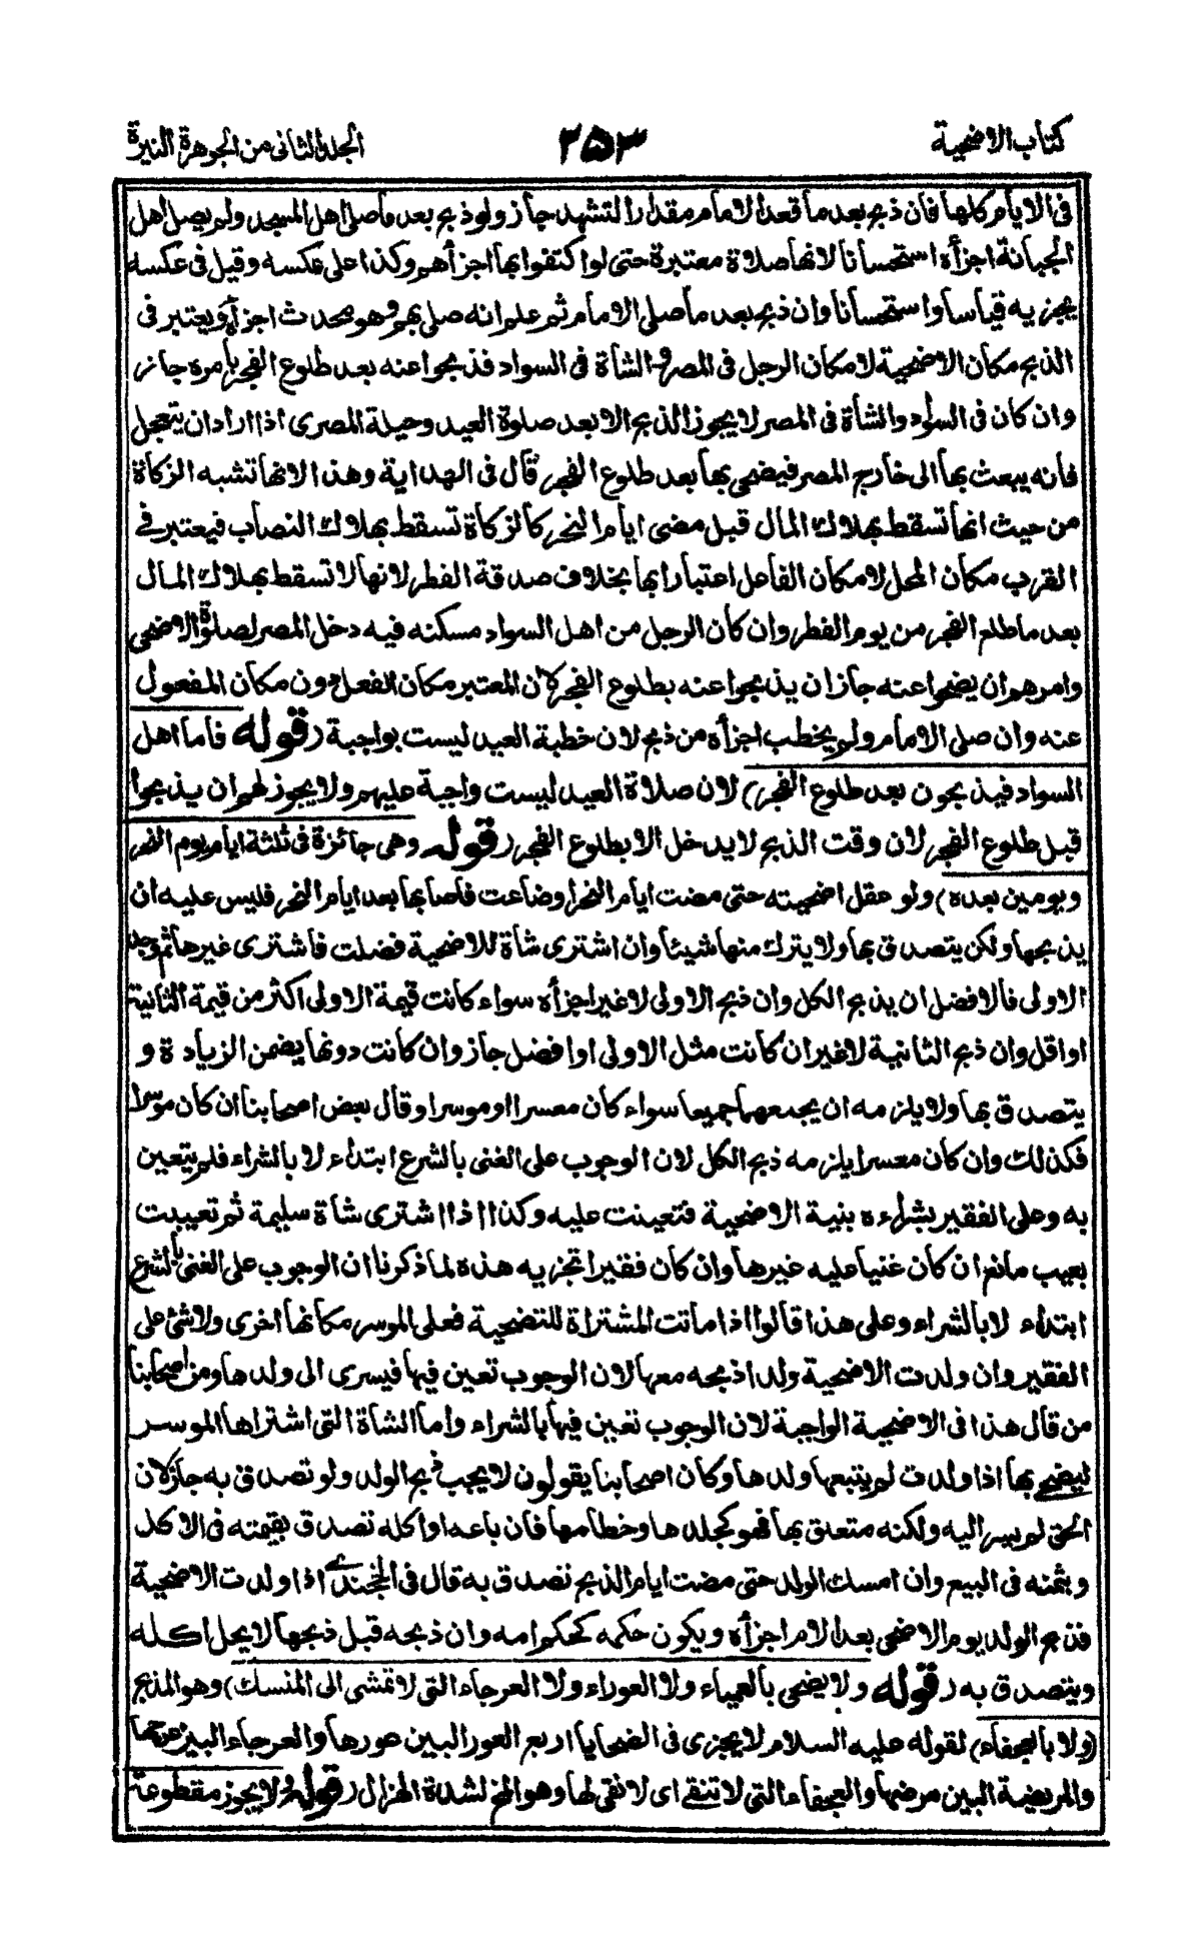 كتاب الاضحية ٢٥٣ الجلد الثانى من الجوهرة النيرة
فى الايام كلها فان ذبح بعد ما قعد الامام مقدار التشهد جاز ولو ذبح بعد ما صلى اهل المسجد ولم يصل اهل
الجبانة اجزأه استحسانا لانها صلاة معتبرة حتى لو اكتفوا بها اجزأهم وكذا على عكسه وقيل فى عكسه
يجزيه قياسا واستحسانا وان ذبح بعد ما صلى الامام ثم علم انه صلى بهم وهو محدث اجزأه ويعتبر فى
الذبح مكان الاضحية لا مكان الرجل فى المصر والشاة فى السواد فذبحوا عنه بعد طلوع الفجر بامره جاز
وان كان فى السواد والشاة فى المصر لا يجوز الذبح الا بعد صلوة العيد وحيلة المصرى اذا اراد ان يتعجل
فانه يبعث بها الى خارج المصر فيضحى بها بعد طلوع الفجر قال فى الهداية وهذا لانها تشبه الزكاة
من حيث انها تسقط بهلاك المال قبل مضى ايام النحر كالزكاة تسقط بهلاك النصاب فيعتبر فى
القرب مكان المحل لا مكان الفاعل اعتبارا بها بخلاف صدقة الفطر لانها لا تسقط بهلاك المال
بعد ما طلع الفجر من يوم الفطر وان كان الرجل من اهل السواد مسكنه فيه دخل المصر لصلوة الاضحى
وامرهم ان يضحوا عنه جاز ان يذبحوا عنه بطلوع الفجر لان المعتبر مكان الفعل دون مكان المفعول
عنه وان صلى الامام ولم يخطب اجزأه من ذبح لان خطبة العيد ليست بواجبة (قوله فاما اهل
السواد فيذبحون بعد طلوع الفجر) لان صلاة العيد ليست واجبة عليهم ولا يجوز لهم ان يذبحوا
قبل طلوع الفجر لان وقت الذبح لا يدخل الا بطلوع الفجر (قوله وهى جائزة فى ثلثة ايام يوم النحر
ويومين بعده) ولو عقل اضحيته حتى مضت ايام النحر او ضاعت فاصابها بعد ايام النحر فليس عليه ان
يذبحها ولكن يتصدق بها ولا يترك منها شيئا وان اشترى شاة للاضحية فضلت فاشترى غيرها ثم وجد
الاولى فالافضل ان يذبح الكل وان ذبح الاولى لا غير اجزأه سواء كانت قيمة الاولى اكثر من قيمة الثانية
او اقل وان ذبح الثانية لا غير ان كانت مثل الاولى او افضل جاز وان كانت دونها يضمن الزيادة و
يتصدق بها ولا يلزمه ان يجمعهما جميعا سواء كان معسرا او موسرا وقال بعض اصحابنا ان كان موسرا
فكذلك وان كان معسرا يلزمه ذبح الكل لان الوجوب على الغنى بالشرع ابتداء لا بالشراء فلم يتعين
به وعلى الفقير بشراءه بنية الاضحية فتعينت عليه وكذا اذا اشترى شاة سليمة ثم تعيبت
بعيب مانع ان كان غنيا عليه غيرها وان كان فقيرا تجزيه هذه لما ذكرنا ان الوجوب على الغنى بالشرع
ابتداء لا بالشراء وعلى هذا قالوا اذا ماتت المشتراة للتضحية فعلى الموسر مكانها اخرى ولا شئ على
الفقير وان ولدت الاضحية ولدا ذبحه معها لان الوجوب تعين فيها فيسرى الى ولدها ومن اصحابنا
من قال هذا فى الاضحية الواجبة لان الوجوب تعين فيها بالشراء واما الشاة التى اشتراها الموسر
ليضحى بها اذا ولدت لم يتبعها ولدها وكان اصحابنا يقولون لا يجب ذبح الولد ولو تصدق به جاز لان
الحق لم يسر اليه ولكنه متعلق بها فهو كجلدها وخطامها فان باعه او اكله تصدق بقيمته فى الاكل
وبثمنه فى البيع وان امسك الولد حتى مضت ايام الذبح تصدق به قال فى الخجندى اذا ولدت الاضحية
فذبح الولد يوم الاضحى بعد الام اجزأه ويكون حكمه كحكم امه وان ذبحه قبل ذبحها لا يحل اكله
ويتصدق به (قوله ولا يضحى بالعمياء ولا العوراء ولا العرجاء التى لا تمشى الى المنسك) وهو المذبح
(ولا بالعجفاء) لقوله عليه السلام لا يجزى فى الضحايا اربع العور البين عورها والعرجاء البين عرجها
والمريضة البين مرضها والعجفاء التى لا تنقى اى لا نقى لها وهو المخ لشدة الهزال (قوله ولا يجوز مقطوعة